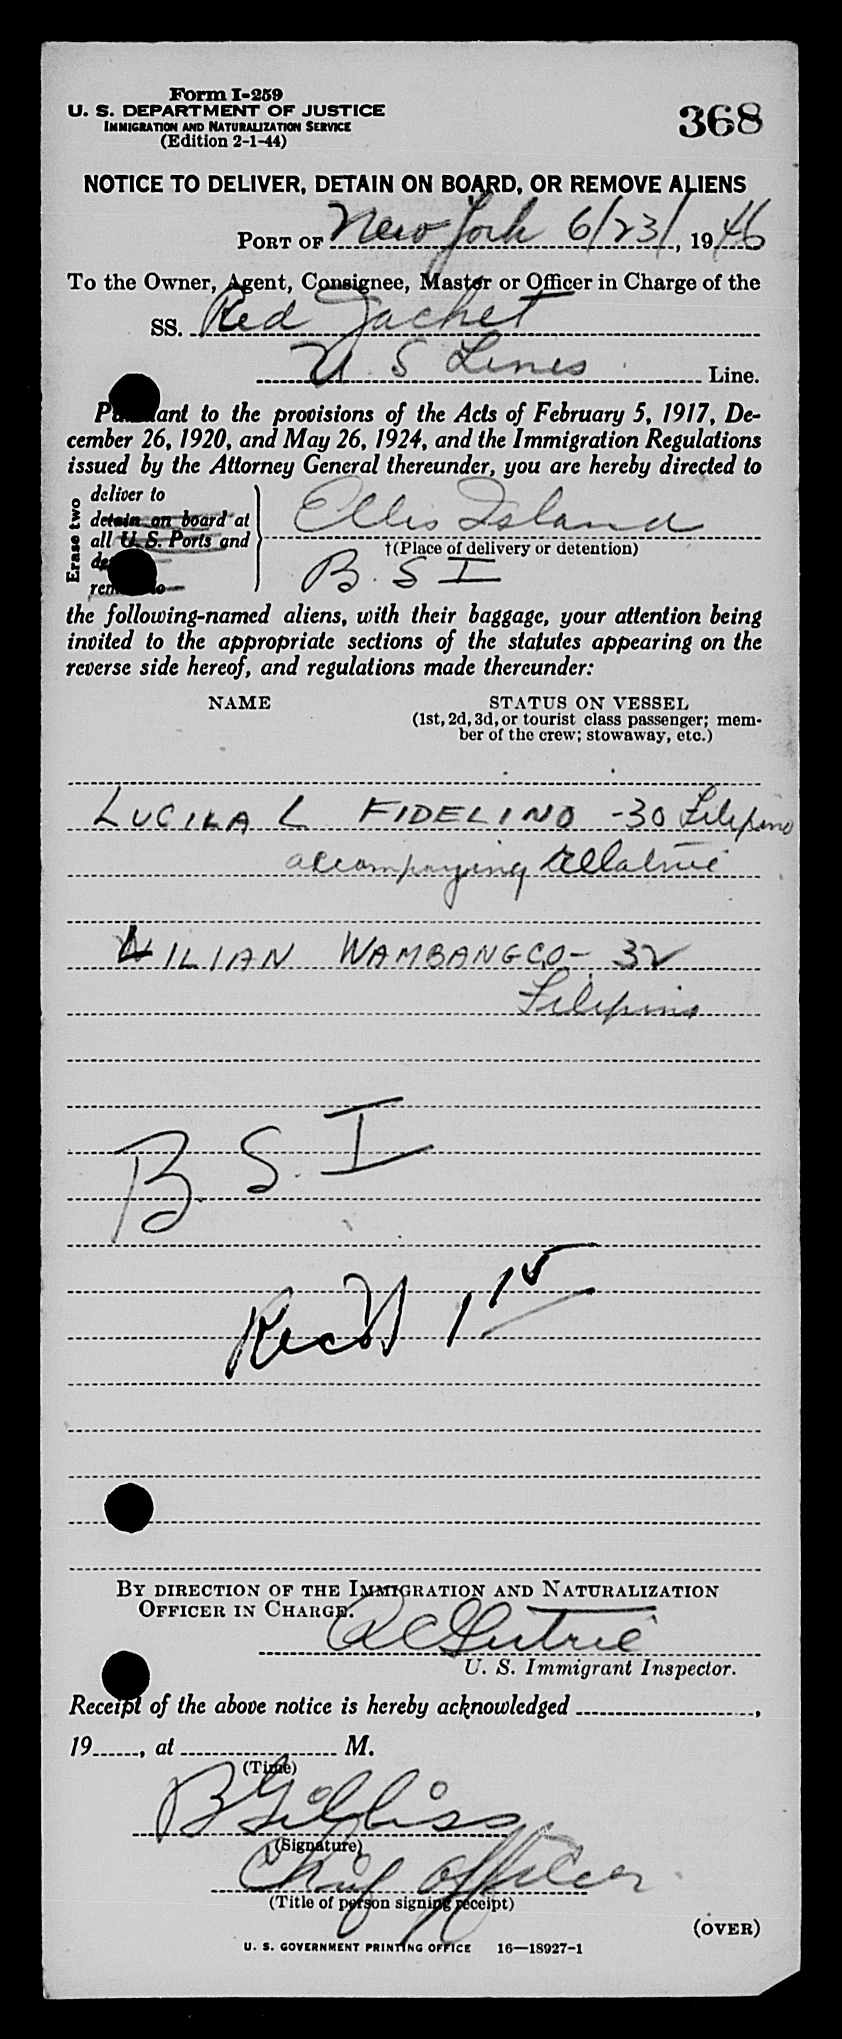 Form I-259
U. S. DEPARTMENT OF JUSTICE
IMMIGRATION AND NATURALIZATION SERVICE
(Edition 2-1-44)
368
NOTICE TO DELIVER, DETAIN ON BOARD, OR REMOVE ALIENS
PORT OF New York 6/23/, 1946
To the Owner, Agent, Consignee, Master or Officer in Charge of the
SS. Red Jacket
U S Lines Line.
Pursuant to the provisions of the Acts of February 5, 1917, De-
cember 26, 1920, and May 26, 1924, and the Immigration Regulations
issued by the Attorney General thereunder, you are hereby directed to
Erase two
deliver to
detain on board at
all U. S. Ports and
remove to
Ellis Island
†(Place of delivery or detention)
B. S I
the following-named aliens, with their baggage, your attention being
invited to the appropriate sections of the statutes appearing on the
reverse side hereof, and regulations made thereunder:
NAME
STATUS ON VESSEL
(1st, 2d, 3d, or tourist class passenger; mem-
ber of the crew; stowaway, etc.)
LUCILA L FIDELINO - 30 Filipino
accompanying
LILIAN WAMBANGCO - 32
Filipino
B. S. I
Rec'd 1 15
BY DIRECTION OF THE IMMIGRATION AND NATURALIZATION
OFFICER IN CHARGE.
U. S. Immigrant Inspector.
Receipt of the above notice is hereby acknowledged ,
19 , at M.
(Time)
(Signature)
Chief Officer
(Title of person signing receipt)
(OVER)
U. S. GOVERNMENT PRINTING OFFICE 16—18927-1